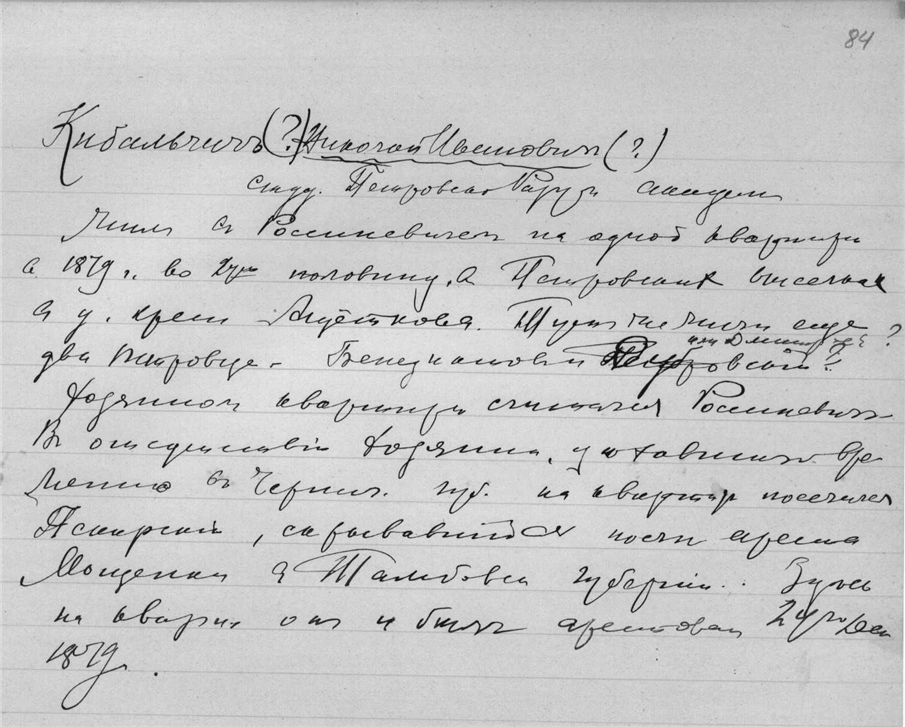 84
Кибальчичъ (?) Николай Ивановичъ (?)
студ. Петровско Разум академ
Жилъ съ Росциневичем на одной квартире
в 1879 г. во 2ую половину, в Петровских выселках
в д. крест. Тут же жили еще
или Дмитр ?
два петровца - Бенедиктович Петровский ?
Хозяином квартиры считался Росциневич
В отсутствии хозяина, уехавшего вре
менно в Черниг. губ. на квартире поселился
Пскарский, скрывавшийся после ареста
в Тамбовск губернии. Здесь
на кварт. он и был арестован 24го Дек
1879